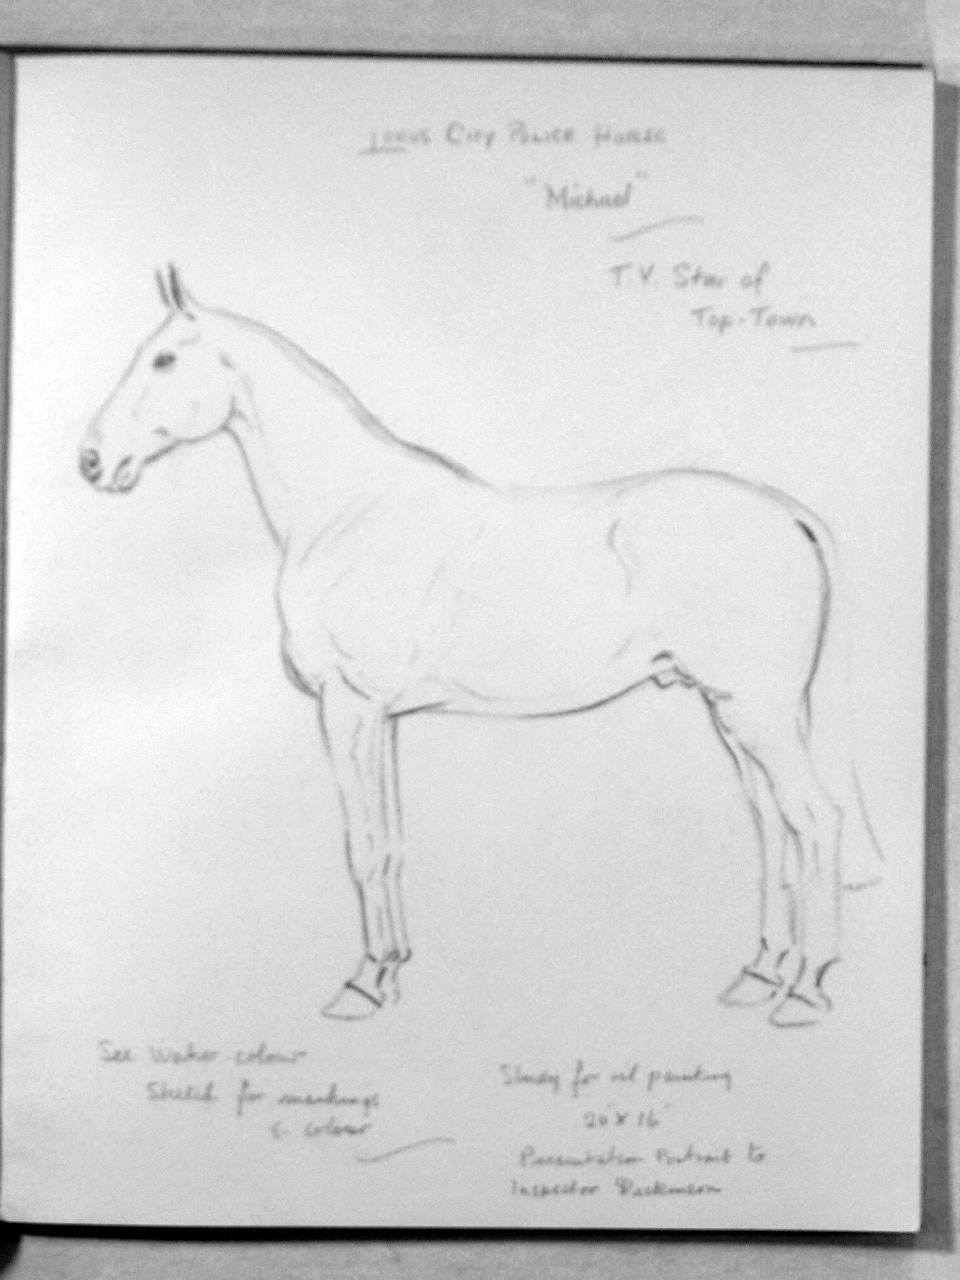 Leeds City Police Horse
"Michael"
T.V. Star of
Top-Town
See Water-colour
Sketch for markings
& colour
Study for oil painting
20" x 16"
Presentation Portrait to
Inspector Dickinson